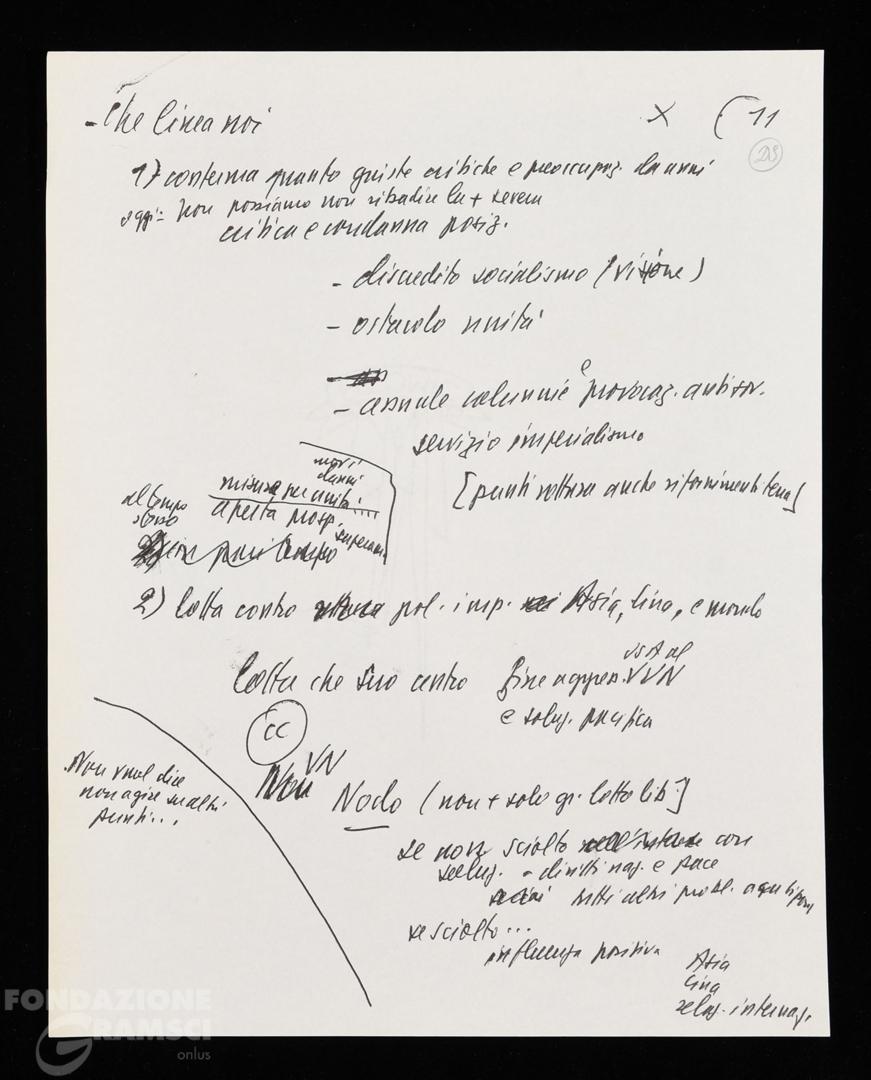 - Che linea noi
X ( 11
DS
1) conferma quanto giuste critiche e preoccupaz. da anni
oggi: Non possiamo non ribadire la + severa
critica e condanna posiz.
- discredito socialismo (visione)
- ostacolo unità
- assurde calunnie e provocaz. antisov.
servizio imperialismo
[punti rottura anche rifornimenti
nuovi
danni
misura per unità
al tempo
stesso
aperta prosp.
superam.
in pari tempo
2) lotta contro pol. imp. Asia, Cina, e mondo
lotta che suo centro fine aggres. USA al VN
e soluz. pacifica
CC
Non vuol dire
non agire su altri
punti...
VN
Nodo (non + solo gr. lotta lib.]
se non sciolto con
soluz. - diritti naz. e pace
tutti altri probl.
se sciolto...
influenza positiva
Asia
Cina
relaz. internaz.
FONDAZIONE
GRAMSCI
onlus